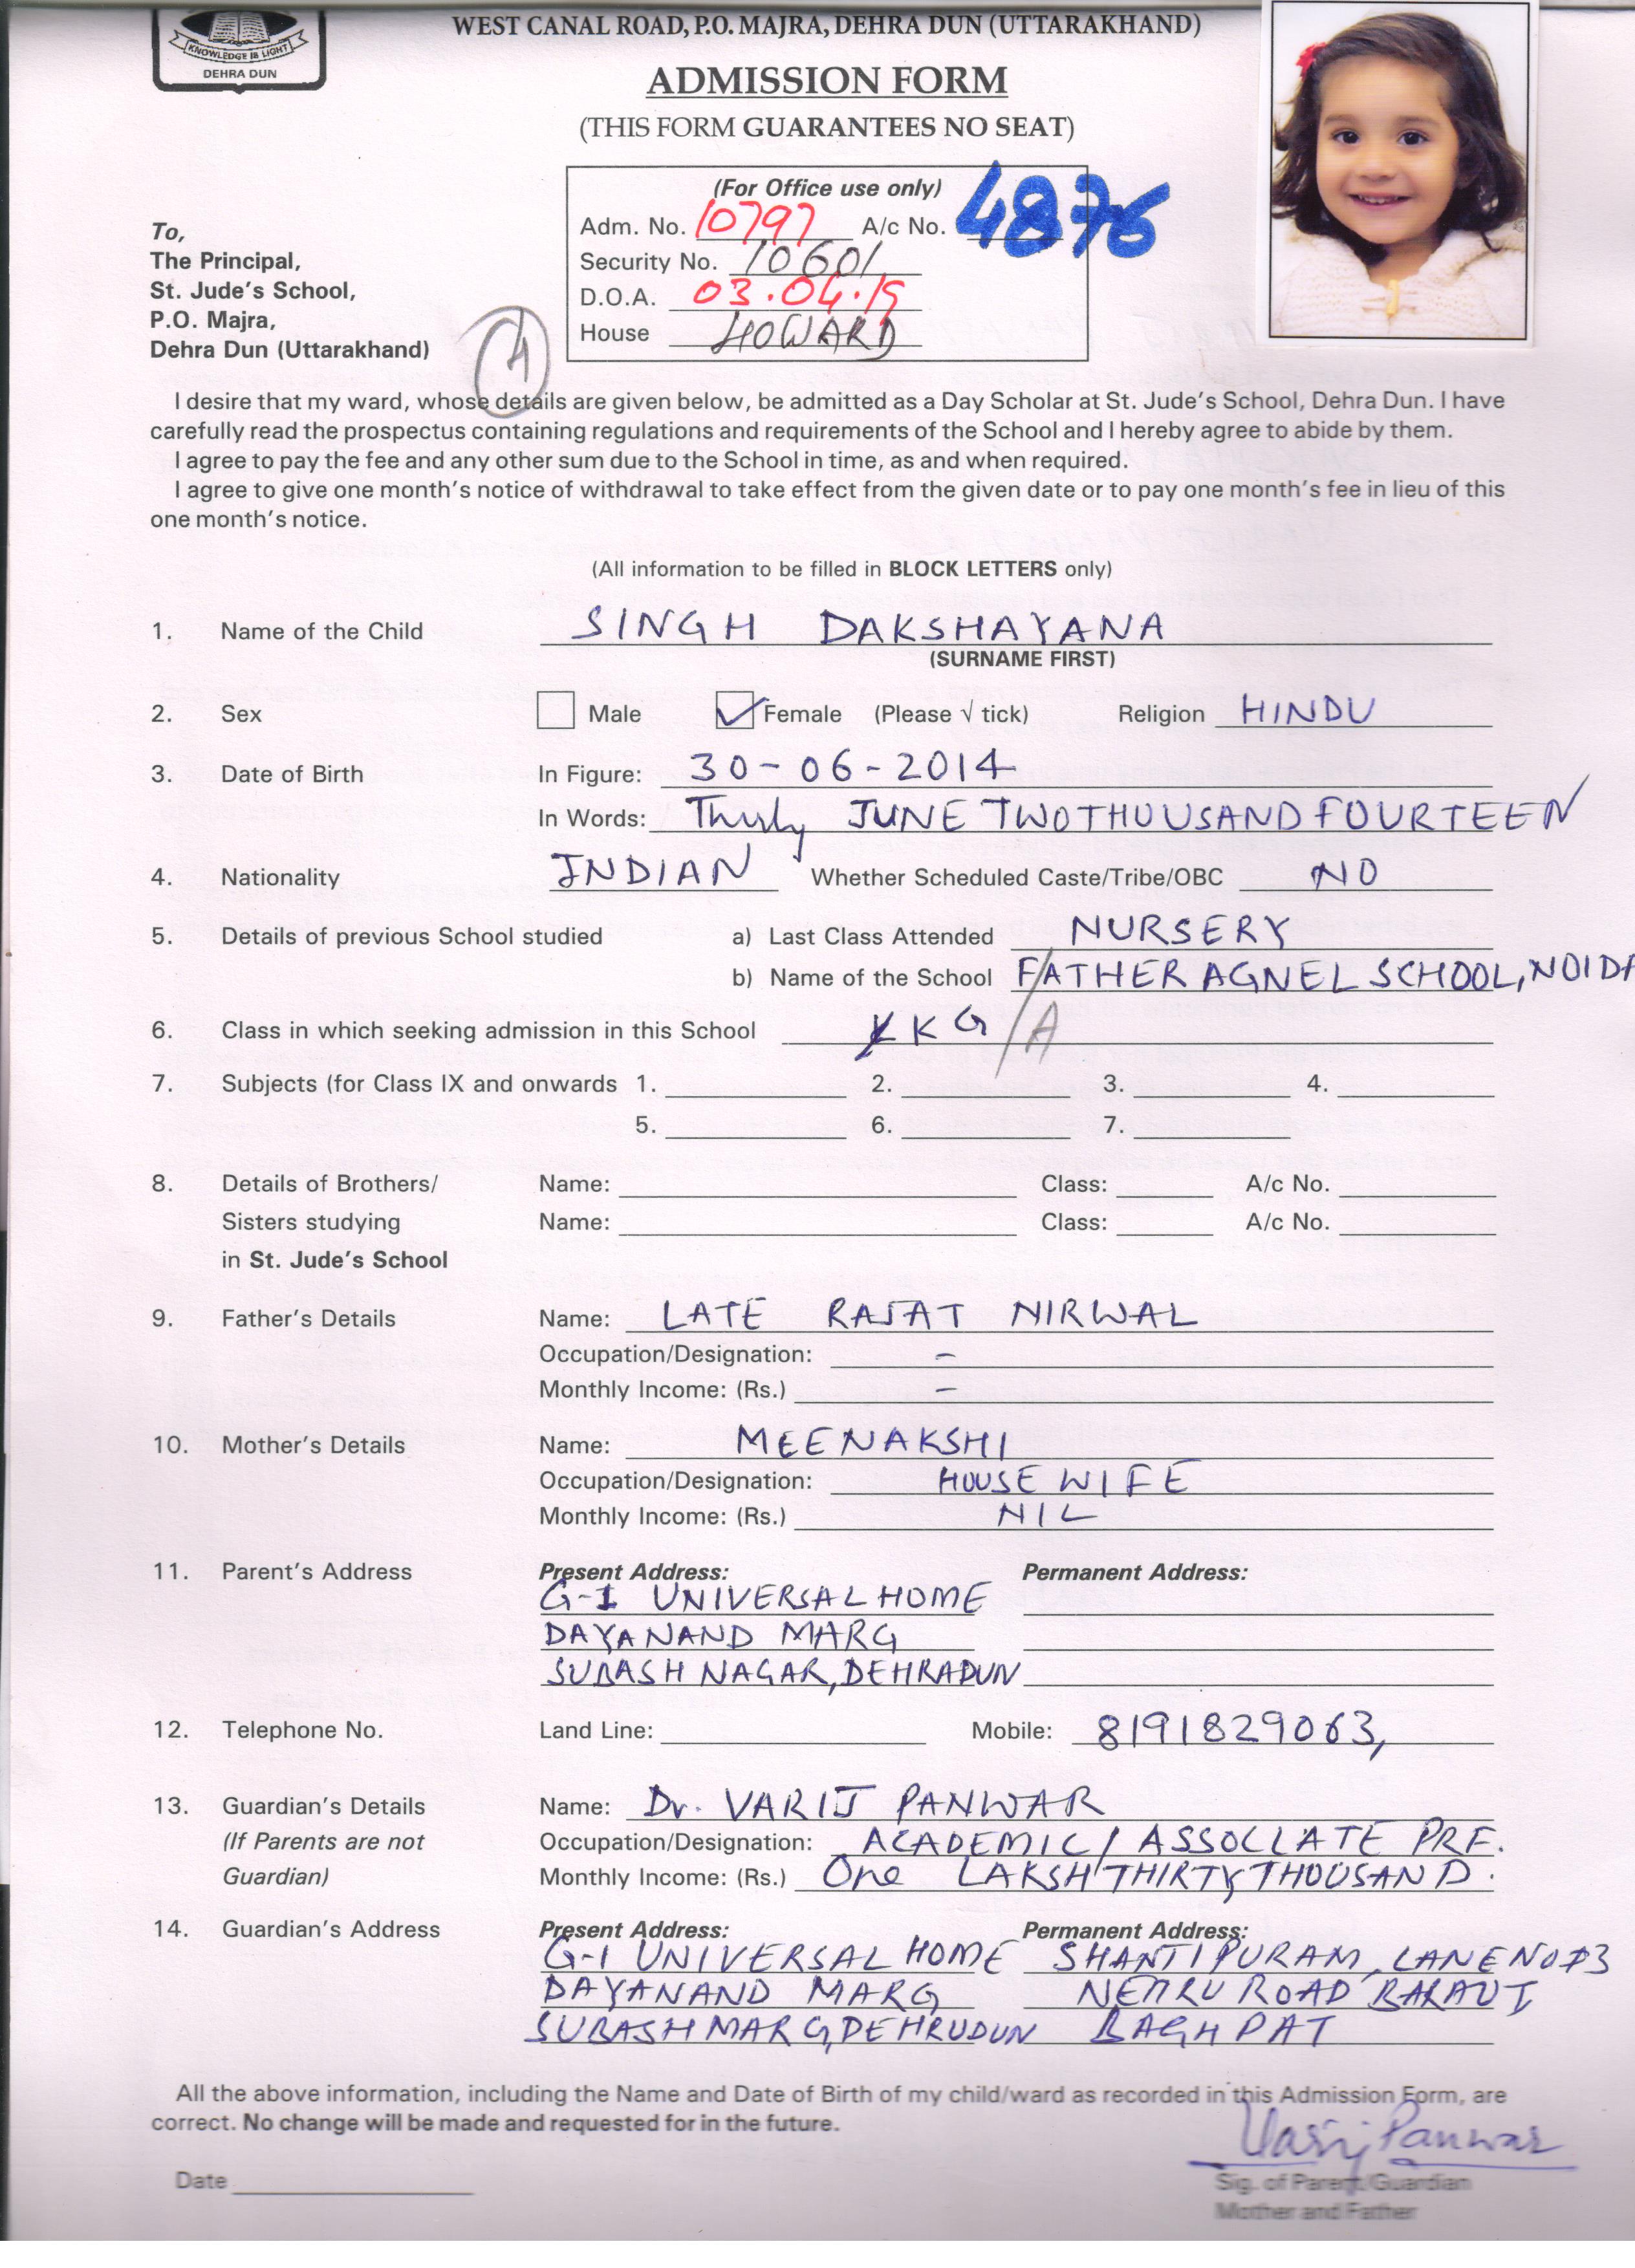 WEST CANAL ROAD, P.O. MAJRA, DEHRA DUN (UTTARAKHAND)
KNOWLEDGE IS LIGHT
DEHRA DUN
ADMISSION FORM
(THIS FORM GUARANTEES NO SEAT)
(For Office use only)
Adm. No. 10797 A/c No. 4876
Security No. 10601
D.O.A. 03.04.19
House HOWARD
To,
The Principal,
St. Jude's School,
P.O. Majra,
Dehra Dun (Uttarakhand)
I desire that my ward, whose details are given below, be admitted as a Day Scholar at St. Jude's School, Dehra Dun. I have
carefully read the prospectus containing regulations and requirements of the School and I hereby agree to abide by them.
I agree to pay the fee and any other sum due to the School in time, as and when required.
I agree to give one month's notice of withdrawal to take effect from the given date or to pay one month's fee in lieu of this
one month's notice.
(All information to be filled in BLOCK LETTERS only)
1. Name of the Child SINGH DAKSHAYANA
(SURNAME FIRST)
2. Sex Male Female (Please √ tick) Religion HINDU
3. Date of Birth In Figure: 30-06-2014
In Words: Thirty JUNE TWO THOUUSAND FOURTEEN
4. Nationality INDIAN Whether Scheduled Caste/Tribe/OBC NO
5. Details of previous School studied a) Last Class Attended NURSERY
b) Name of the School FATHER AGNEL SCHOOL, NOIDA
6. Class in which seeking admission in this School KG/A
7. Subjects (for Class IX and onwards 1. 2. 3. 4.
5. 6. 7.
8. Details of Brothers/ Name: Class: A/c No.
Sisters studying Name: Class: A/c No.
in St. Jude's School
9. Father's Details Name: LATE RAJAT NIRWAL
Occupation/Designation: -
Monthly Income: (Rs.) -
10. Mother's Details Name: MEENAKSHI
Occupation/Designation: HOUSE WIFE
Monthly Income: (Rs.) NIL
11. Parent's Address Present Address: Permanent Address:
G-1 UNIVERSAL HOME
DAYANAND MARG
SUBASH NAGAR, DEHRADUN
12. Telephone No. Land Line: Mobile: 8191829063,
13. Guardian's Details Name: Dr. VARIJ PANWAR
(If Parents are not Occupation/Designation: ACADEMIC/ ASSOCIATE PRF.
Guardian) Monthly Income: (Rs.) One LAKSH THIRTY THOUSAND.
14. Guardian's Address Present Address: Permanent Address:
G-1 UNIVERSAL HOME SHANTIPURAM, LANE NO #3
DAYANAND MARG NEHRU ROAD BARAUT
SUBASH MARG, DEHRUDUN BAGHPAT
All the above information, including the Name and Date of Birth of my child/ward as recorded in this Admission Form, are
correct. No change will be made and requested for in the future.
Varij Panwar
Date
Sig. of Parent/Guardian
Mother and Father